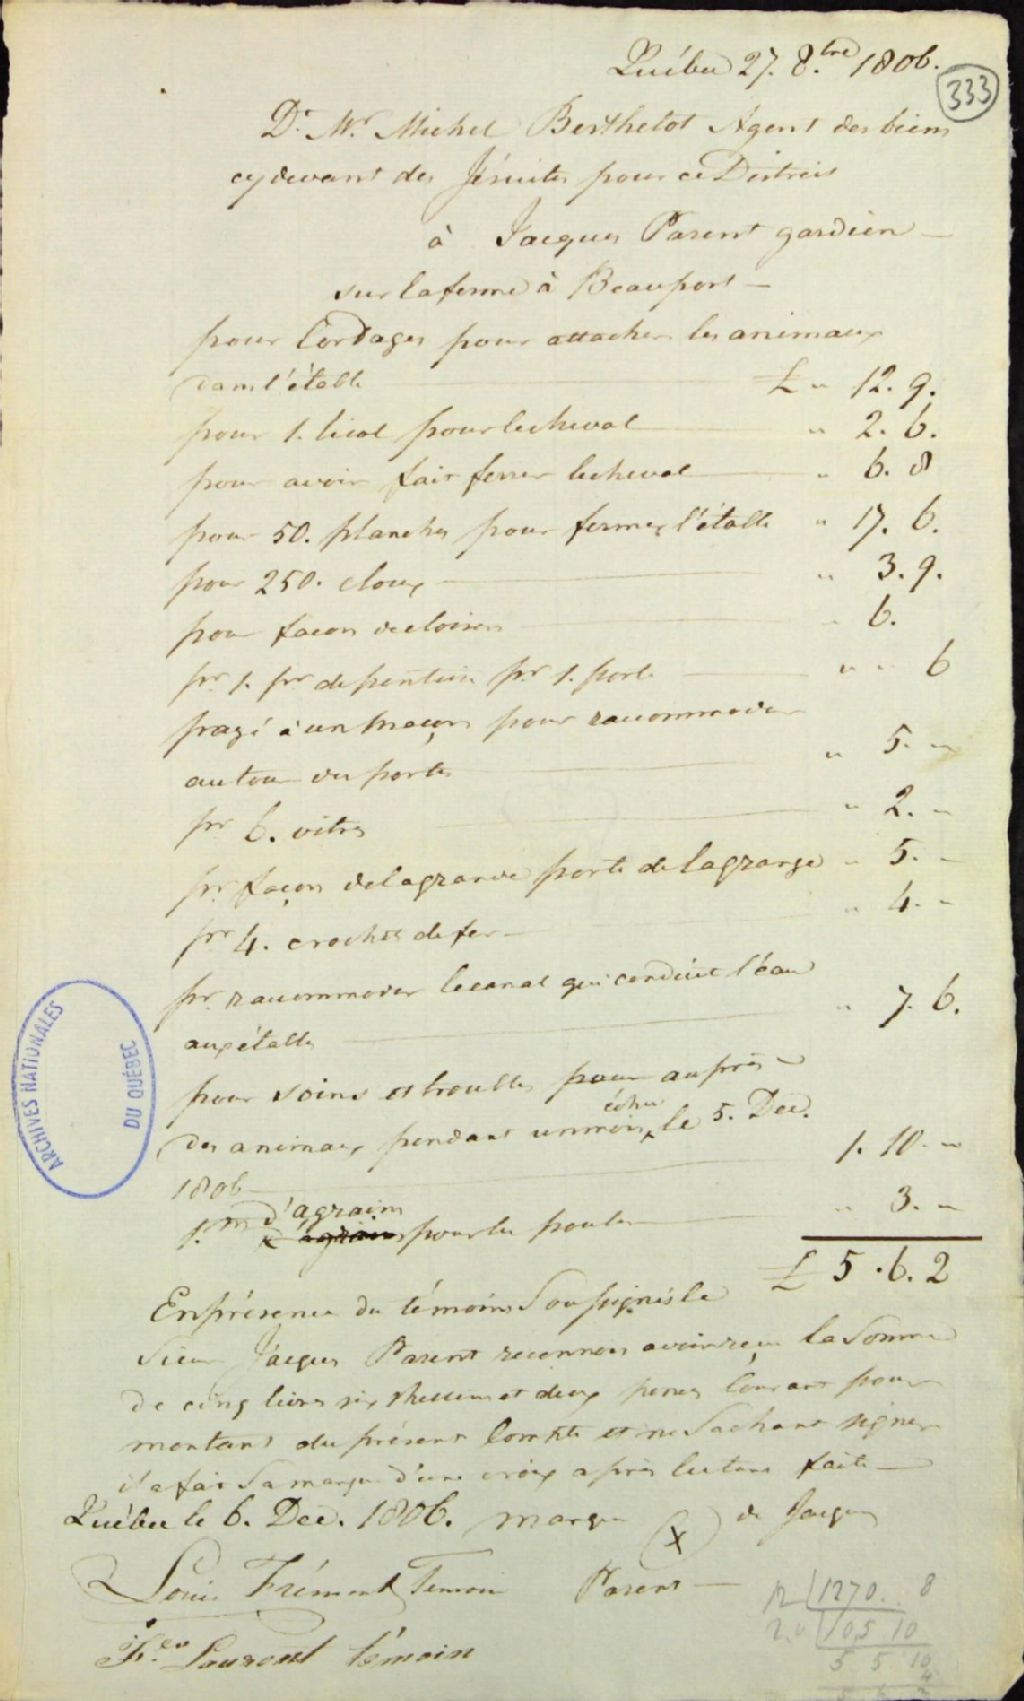 Québec 27. 8.bre 1806.
333
Dr. Mr. Michel Berthelot Agent des biens
cy devant des Jésuites pour ce District
à Jacques Parent gardien
sur la ferme à Beauport
pour Cordages pour attacher les animaux
dans l'étable £ " 12. 9.
pour 1. licol pour le cheval " 2. 6.
pour avoir fait ferrer le cheval " 6. 8
pour 50. planches pour fermer l'étable " 17. 6.
pour 250. cloux " 3. 9.
pour facon de cloison " 6.
pr. 1. pr de penture pr. 1. porte " " 6
payé à un maçon pour raccommoder
autour des portes " 5. "
pr 6. vitres " 2. "
pr. façon de la grande porte de la grange " 5. "
pr 4. crochets de fer " 4. "
pr. raccommoder le canal qui conduit l'eau
aux étables " 7. 6.
pour soins et troubles pour auprès
échu
des animaux pendant un mois le 5. Dec.
1806 1. 10. "
d'agrains
1. m pour les poules " 3. "
£ 5. 6. 2
En présence des témoins Soussignés le
Sieur Jacques Parent reconnois avoir reçu la Somme
de cinq livres six shellins et deux pences Courant pour
montant du présent Compte et ne Sachant signer
il a fait Sa marque d'une croix après lecture faite
Québec le 6. Dec. 1806. marque (x) de Jacques
Louis Frémont Temoin Parent
F. Laurent témoin
12 1270.. 8
2.0 10,5 10
5 5 10
4
5 6 2
ARCHIVES NATIONALES
DU QUÉBEC